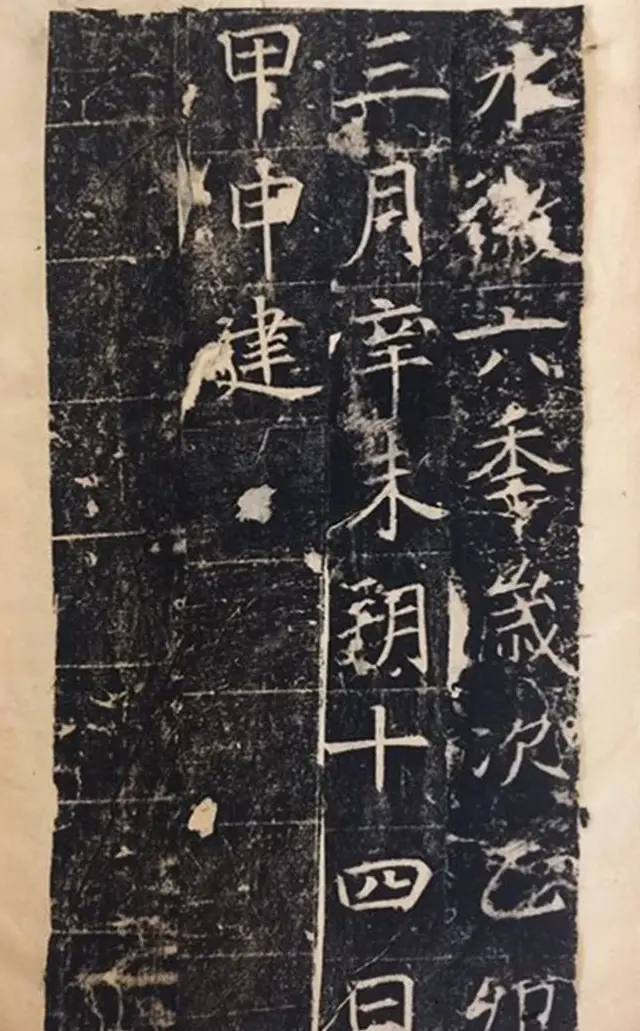 永徽六季歲次乙卯
三月辛未朔十四日
甲申建